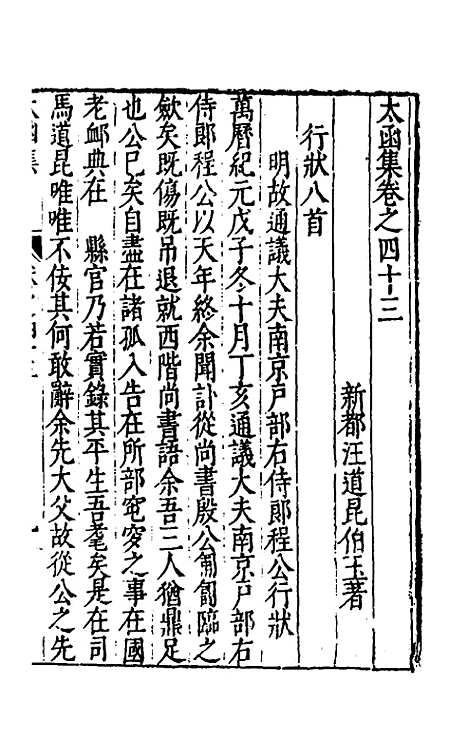 太函集卷之四十三
新都汪道昆伯玉著
行狀八首
明故通議大夫南京戶部右侍郎程公行狀
萬曆紀元戊子冬十月丁亥通議大夫南京戶部右
侍郎程公以天年終余聞訃從尚書殷公匍匐臨之
斂矣既傷既吊退就西階尚書語余吾三人猶鼎足
也公已矣自盡在諸孤入告在所部窀穸之事在國
老卹典在　縣官乃若實錄其平生吾耄矣是在司
馬道昆唯唯不佞其何敢辭余先大父故從公之先